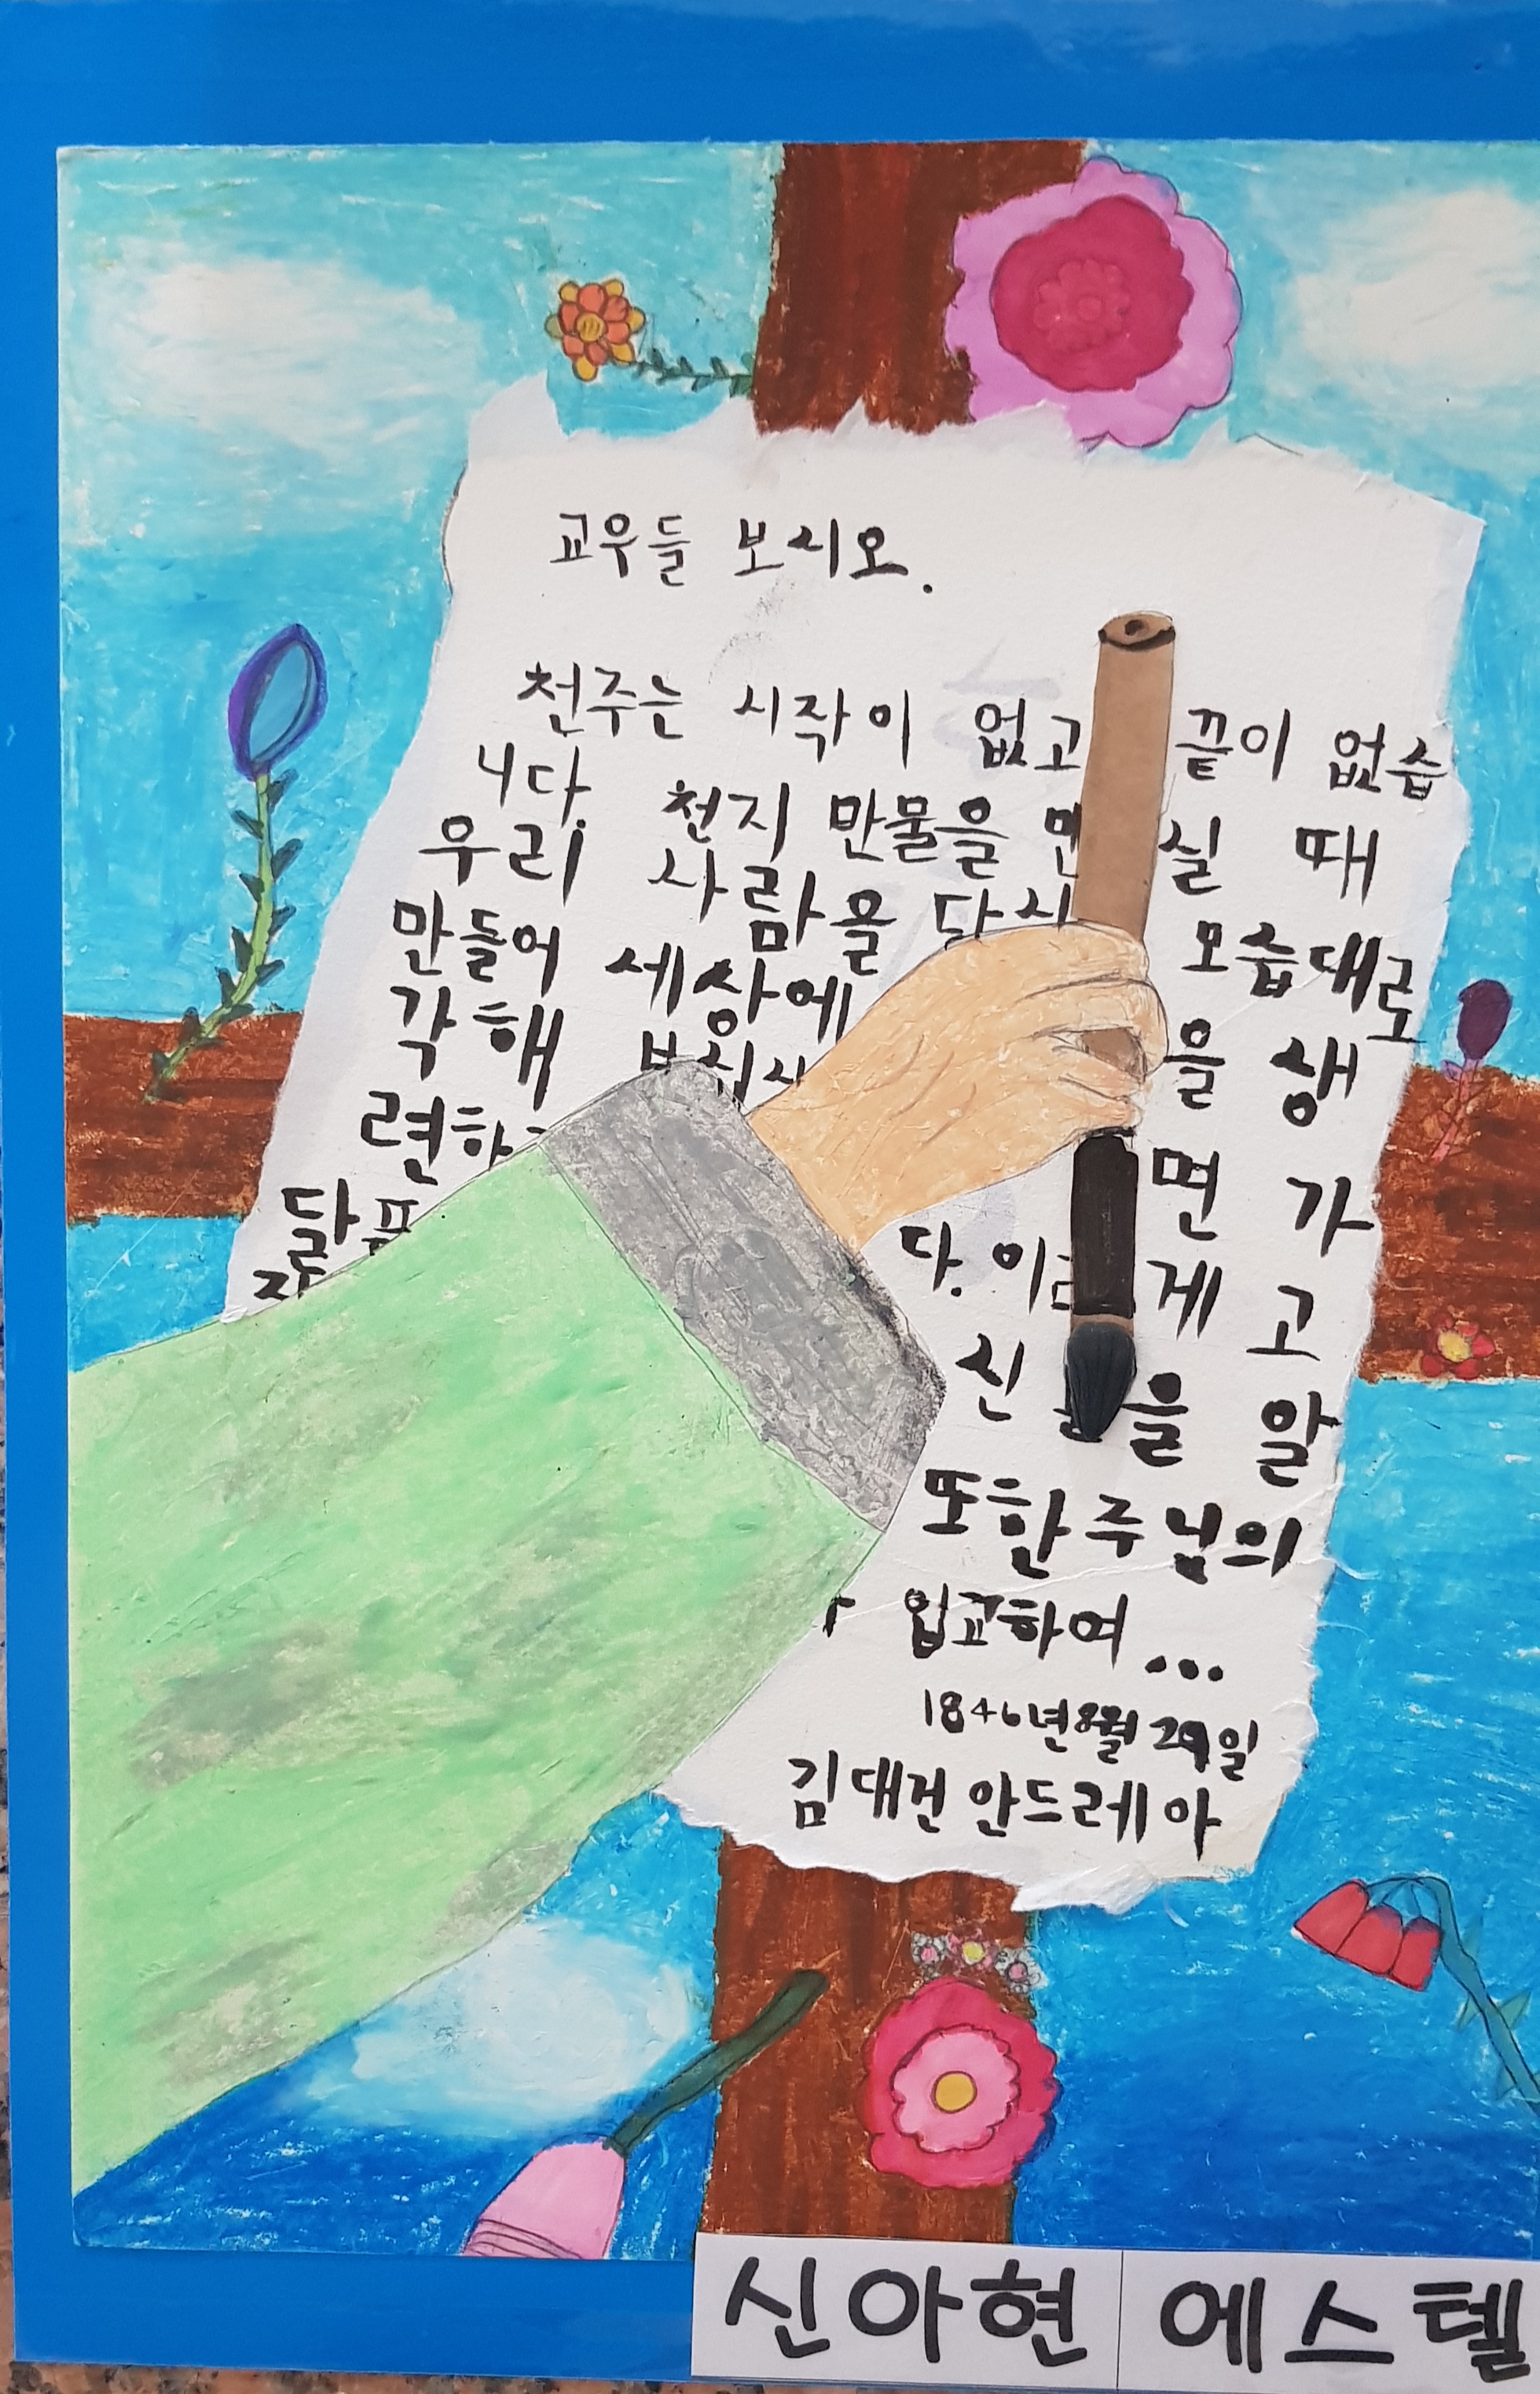 교우들 보시오.
천주는 시작이 없고 끝이 없습
니다. 천지 만물을 실 때
우리 사람을 당신 모습대로
만들어 세상에 을 생
각해
면 가
다. 게 고
신 을 알
또한 주님의
입교하여...
1846년 8월 29일
김대건 안드레아
신아현 에스텔